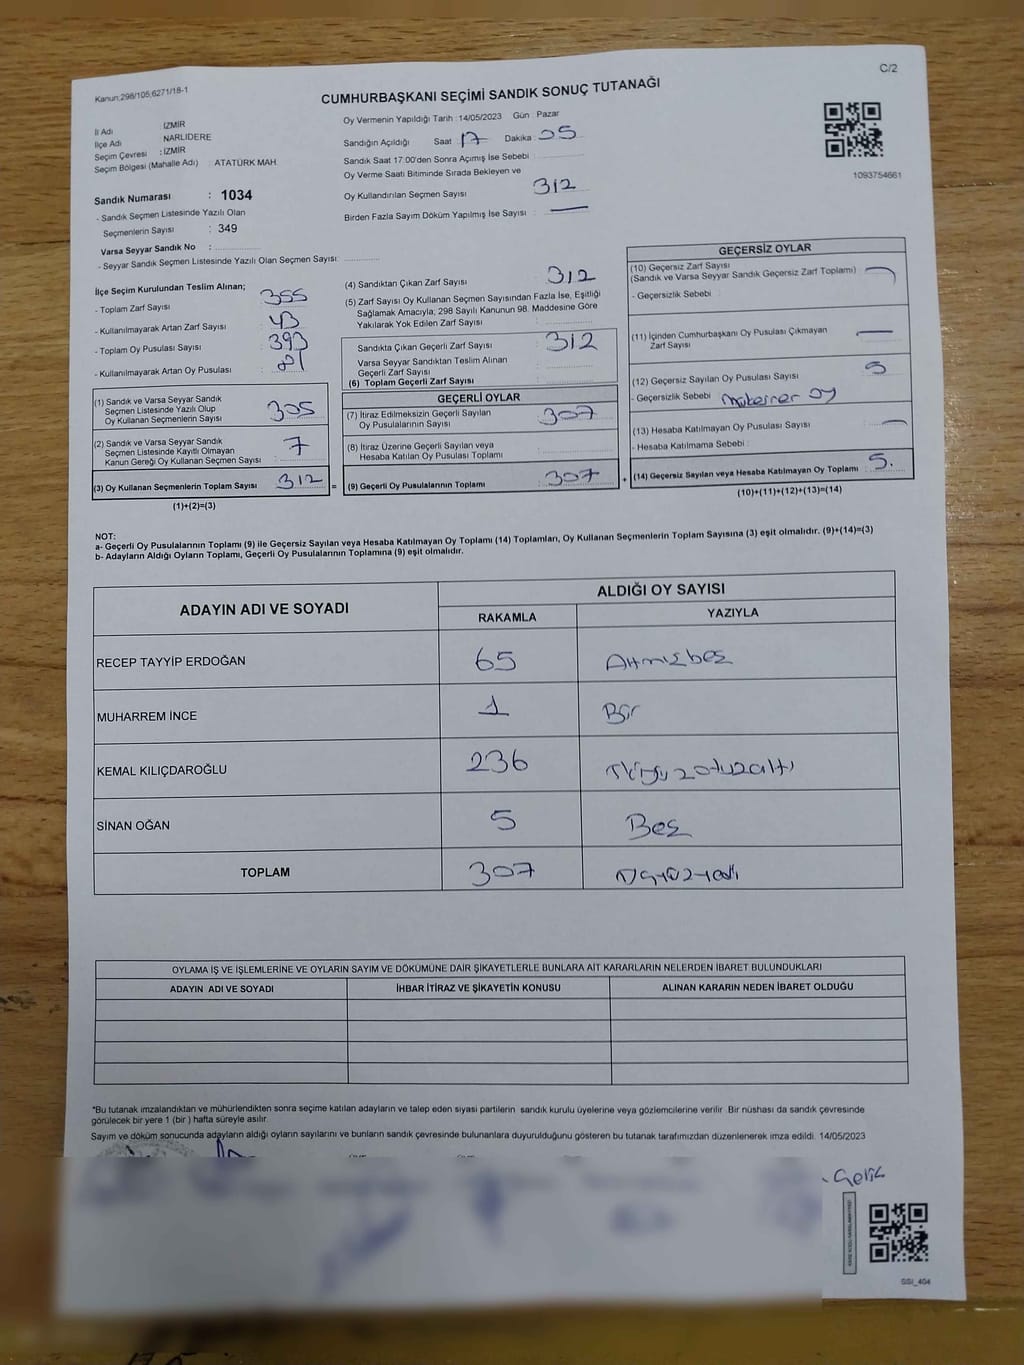 C/2
Kanun:298/105;6271/18-1
CUMHURBAŞKANI SEÇİMİ SANDIK SONUÇ TUTANAĞI
İl Adı İZMİR
İlçe Adı NARLIDERE
Seçim Çevresi : İZMİR
Seçim Bölgesi (Mahalle Adı) : ATATÜRK MAH.
Sandık Numarası : 1034
- Sandık Seçmen Listesinde Yazılı Olan
Seçmenlerin Sayısı : 349
Varsa Seyyar Sandık No :
- Seyyar Sandık Seçmen Listesinde Yazılı Olan Seçmen Sayısı:
Oy Vermenin Yapıldığı Tarih : 14/05/2023 Gün : Pazar
Sandığın Açıldığı Saat : 17 Dakika : 05
Sandık Saat 17:00'den Sonra Açımış İse Sebebi :
Oy Verme Saati Bitiminde Sırada Bekleyen ve
Oy Kullandırılan Seçmen Sayısı : 312
Birden Fazla Sayım Döküm Yapılmış İse Sayısı : —
1093754661
İlçe Seçim Kurulundan Teslim Alınan;
- Toplam Zarf Sayısı : 355
- Kullanılmayarak Artan Zarf Sayısı : 43
- Toplam Oy Pusulası Sayısı : 393
- Kullanılmayarak Artan Oy Pusulası : 81
(1) Sandık ve Varsa Seyyar Sandık
Seçmen Listesinde Yazılı Olup
Oy Kullanan Seçmenlerin Sayısı : 305
(2) Sandık ve Varsa Seyyar Sandık
Seçmen Listesinde Kayıtlı Olmayan
Kanun Gereği Oy Kullanan Seçmen Sayısı : 7
(3) Oy Kullanan Seçmenlerin Toplam Sayısı : 312
(1)+(2)=(3)
(4) Sandıktan Çıkan Zarf Sayısı : 312
(5) Zarf Sayısı Oy Kullanan Seçmen Sayısından Fazla İse, Eşitliği
Sağlamak Amacıyla; 298 Sayılı Kanunun 98. Maddesine Göre
Yakılarak Yok Edilen Zarf Sayısı :
Sandıkta Çıkan Geçerli Zarf Sayısı : 312
Varsa Seyyar Sandıktan Teslim Alınan
Geçerli Zarf Sayısı :
(6) Toplam Geçerli Zarf Sayısı :
GEÇERLİ OYLAR
(7) İtiraz Edilmeksizin Geçerli Sayılan
Oy Pusulalarının Sayısı : 307
(8) İtiraz Üzerine Geçerli Sayılan veya
Hesaba Katılan Oy Pusulası Toplamı :
= (9) Geçerli Oy Pusulalarının Toplamı : 307 +
GEÇERSİZ OYLAR
(10) Geçersiz Zarf Sayısı
(Sandık ve Varsa Seyyar Sandık Geçersiz Zarf Toplamı) : —
- Geçersizlik Sebebi :
(11) İçinden Cumhurbaşkanı Oy Pusulası Çıkmayan
Zarf Sayısı : —
(12) Geçersiz Sayılan Oy Pusulası Sayısı : 5
- Geçersizlik Sebebi : Mükerrer oy
(13) Hesaba Katılmayan Oy Pusulası Sayısı : —
- Hesaba Katılmama Sebebi :
(14) Geçersiz Sayılan veya Hesaba Katılmayan Oy Toplamı : 5.
(10)+(11)+(12)+(13)=(14)
NOT:
a- Geçerli Oy Pusulalarının Toplamı (9) ile Geçersiz Sayılan veya Hesaba Katılmayan Oy Toplamı (14) Toplamları, Oy Kullanan Seçmenlerin Toplam Sayısına (3) eşit olmalıdır. (9)+(14)=(3)
b- Adayların Aldığı Oyların Toplamı, Geçerli Oy Pusulalarının Toplamına (9) eşit olmalıdır.
ADAYIN ADI VE SOYADI ALDIĞI OY SAYISI
RAKAMLA YAZIYLA
RECEP TAYYİP ERDOĞAN 65 Altmışbeş
MUHARREM İNCE 1 Bir
KEMAL KILIÇDAROĞLU 236 İkiyüzotuzaltı
SİNAN OĞAN 5 Beş
TOPLAM 307 Üçyüzyedi
OYLAMA İŞ VE İŞLEMLERİNE VE OYLARIN SAYIM VE DÖKÜMÜNE DAİR ŞİKAYETLERLE BUNLARA AİT KARARLARIN NELERDEN İBARET BULUNDUKLARI
ADAYIN ADI VE SOYADI İHBAR İTİRAZ VE ŞİKAYETİN KONUSU ALINAN KARARIN NEDEN İBARET OLDUĞU
*Bu tutanak imzalandıktan ve mühürlendikten sonra seçime katılan adayların ve talep eden siyasi partilerin sandık kurulu üyelerine veya gözlemcilerine verilir. Bir nüshası da sandık çevresinde
görülecek bir yere 1 (bir ) hafta süreyle asılır.
Sayım ve döküm sonucunda adayların aldığı oyların sayılarını ve bunların sandık çevresinde bulunanlara duyurulduğunu gösteren bu tutanak tarafımızdan düzenlenerek imza edildi. 14/05/2023
Çelik
SSI_404